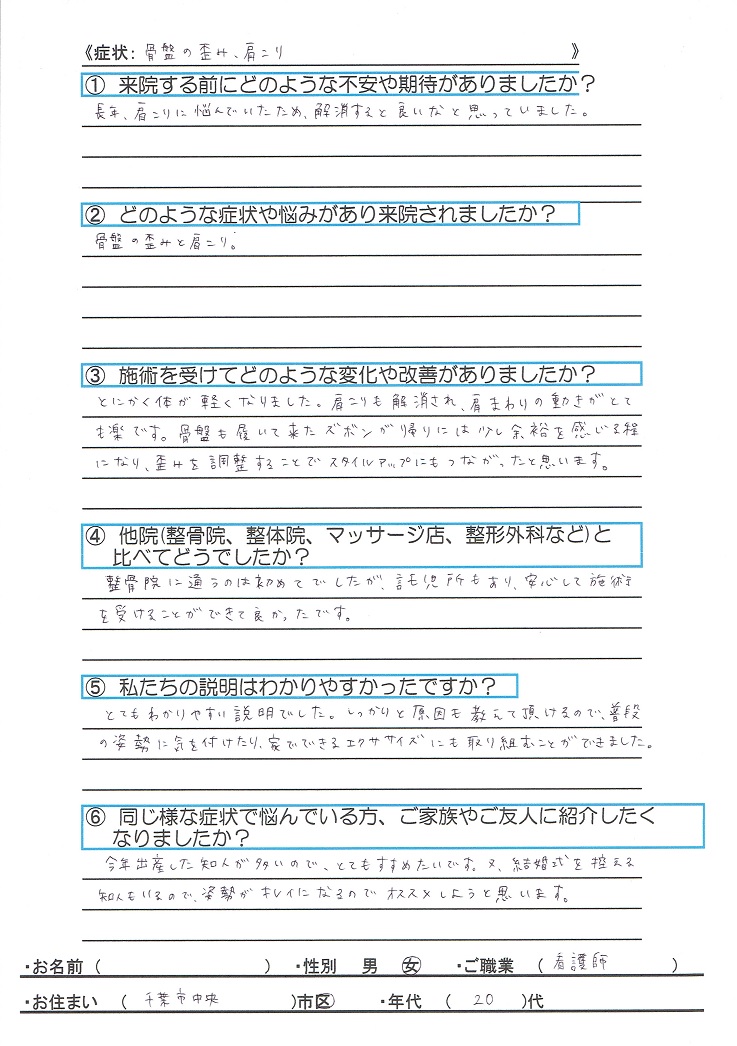 《症状: 骨盤の歪み、肩こり 》
① 来院する前にどのような不安や期待がありましたか？
長年、肩こりに悩んでいたため、解消すると良いなと思っていました。
② どのような症状や悩みがあり来院されましたか？
骨盤の歪みと肩こり。
③ 施術を受けてどのような変化や改善がありましたか？
とにかく体が軽くなりました。肩こりも解消され、肩まわりの動きがとて
も楽です。骨盤も履いて来たズボンが帰りには少し余裕を感じる程
になり、歪みを調整することでスタイルアップにもつながったと思います。
④ 他院(整骨院、整体院、マッサージ店、整形外科など)と
比べてどうでしたか？
整骨院に通うのは初めてでしたが、託児所もあり、安心して施術
を受けることができて良かったです。
⑤ 私たちの説明はわかりやすかったですか？
とてもわかりやすい説明でした。しっかりと原因も教えて頂けるので、普段
の姿勢に気を付けたり、家でできるエクササイズにも取り組むことができました。
⑥ 同じ様な症状で悩んでいる方、ご家族やご友人に紹介したく
なりましたか？
今年出産した知人が多いので、とてもすすめたいです。又、結婚式を控える
知人もいるので、姿勢がキレイになるのでオススメしようと思います。
・お名前 ( ) ・性別 男 女 ・ご職業 ( 看護師 )
・お住まい ( 千葉市中央 )市区 ・年代 ( 20 )代